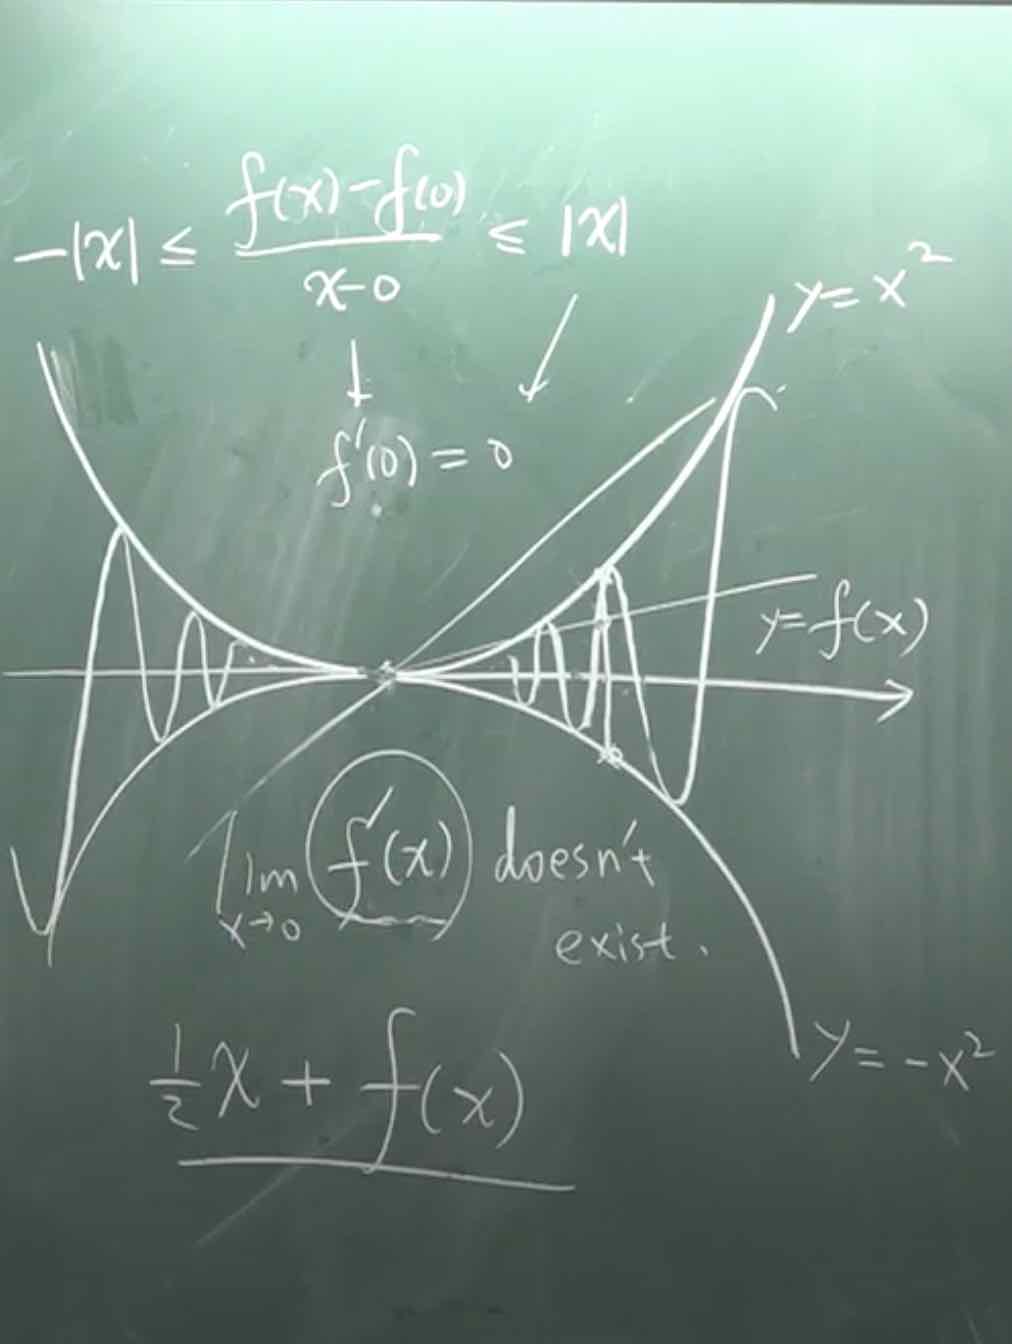 -|x| ≤ (f(x)-f(0))/(x-0) ≤ |x|
y=x²
↓ ↙
f'(0) = 0
y=f(x)
lim x→0 f'(x) doesn't
exist.
y=-x²
½x + f(x)